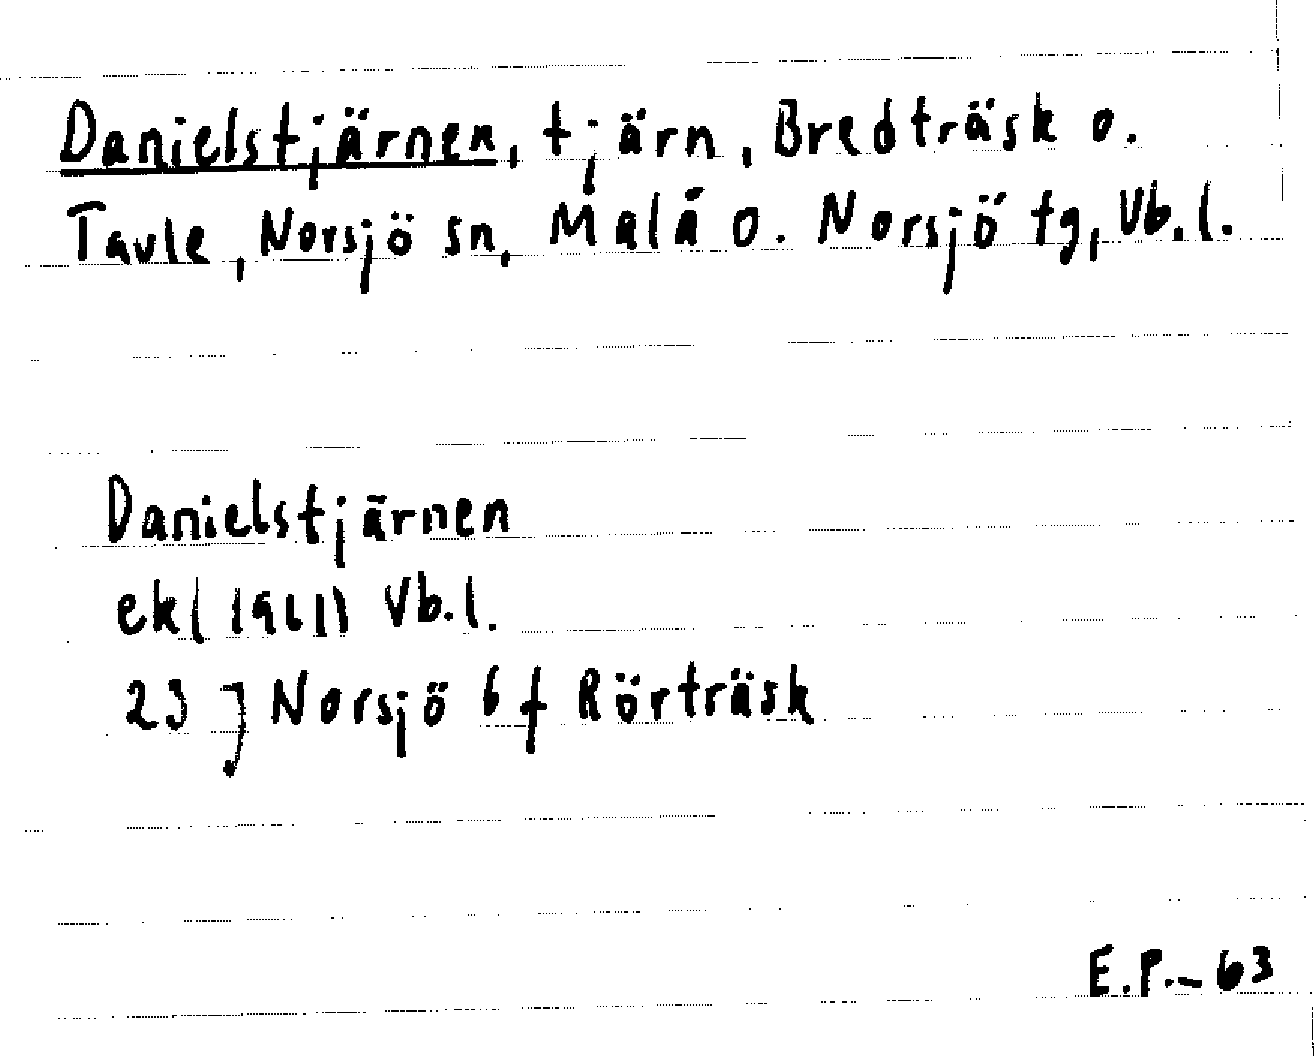 Danielstjärnen, tjärn, Bredträsk o.
Tavle, Norsjö sn, Malå o. Norsjö tg, Vb.l.
Danielstjärnen
ek (1961) Vb.l.
23 J Norsjö 6 f Rörträsk
E.P.-63